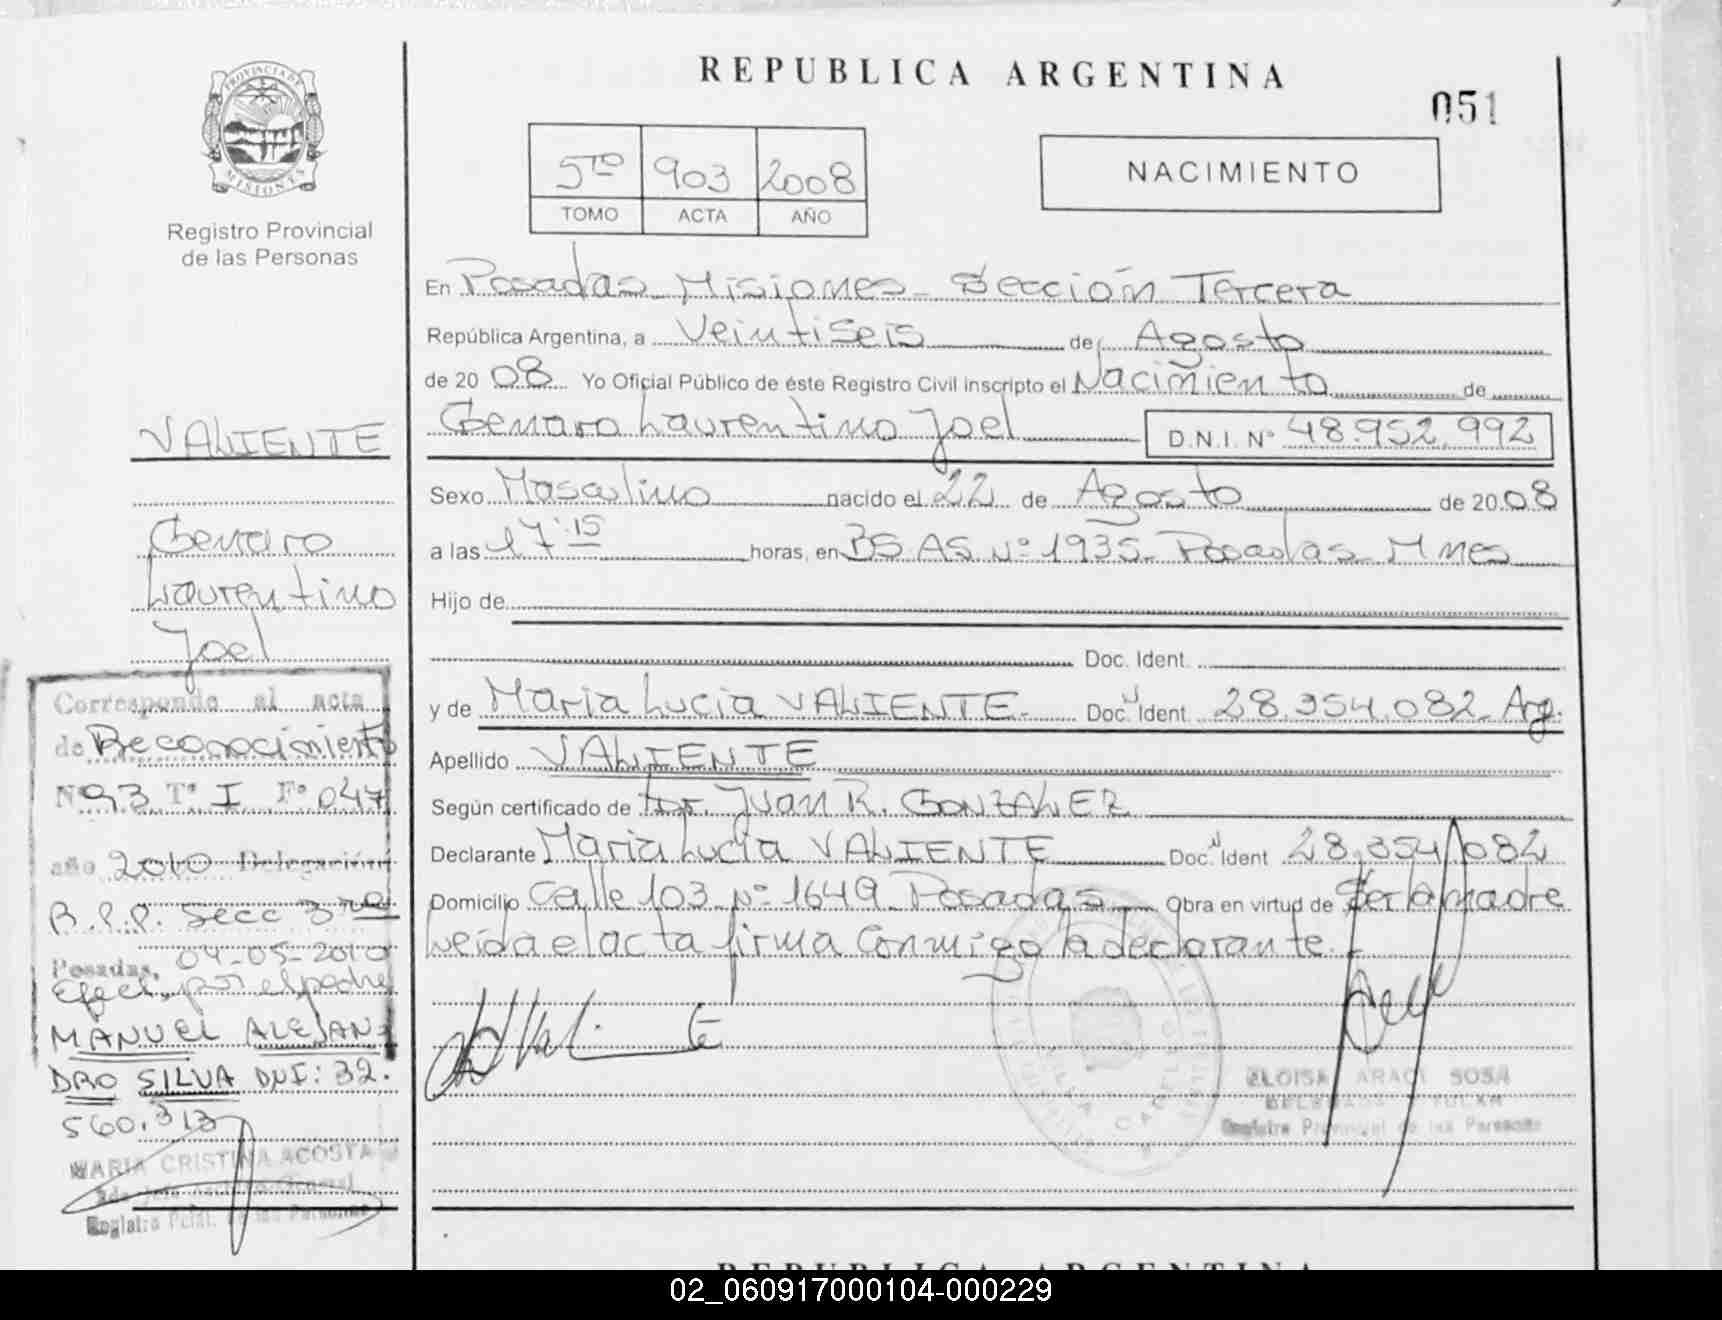 PROVINCIA DE
MISIONES
Registro Provincial
de las Personas
REPUBLICA ARGENTINA
051
5to 903 2008
TOMO ACTA AÑO
NACIMIENTO
En Posadas Misiones - Sección Tercera
República Argentina, a Veintiseis de Agosto
de 2008 Yo Oficial Público de éste Registro Civil inscripto el Nacimiento de
Genaro Laurentino Joel D.N.I. Nº 48.952.992
Sexo Masculino nacido el 22 de Agosto de 2008
a las 17:15 horas, en BS.AS. Nº 1935- Posadas- Mnes
Hijo de
Doc. Ident.
y de Maria Lucia VALIENTE. Doc. Ident 28.354.082- Arg.
Apellido VALIENTE
Según certificado de Dr. Juan R. GONZALEZ
Declarante Maria Lucia VALIENTE Doc. Ident 28.354.082
Domicilio Calle 103 Nº 1649 Posadas Obra en virtud de Ser la madre
Leida el acta firma conmigo la declarante.-
ELOISA ARACI SOSA
DELEGADA TITULAR
Registro Provincial de las Personas
VALIENTE
Genaro
Laurentino
Joel
Corresponde al acta
de Reconocimiento
Nº 93 Tº I Fº 047
año 2010 Delegación
R.P.P. Secc 3ra
Posadas, 04-05-2010
Efect. por el padre
MANUEL ALEJAN-
DRO SILVA DNI: 32.
560.313
MARIA CRISTINA ACOSTA
Registro Pcial. de las Personas
REPUBLICA ARGENTINA
02_060917000104-000229